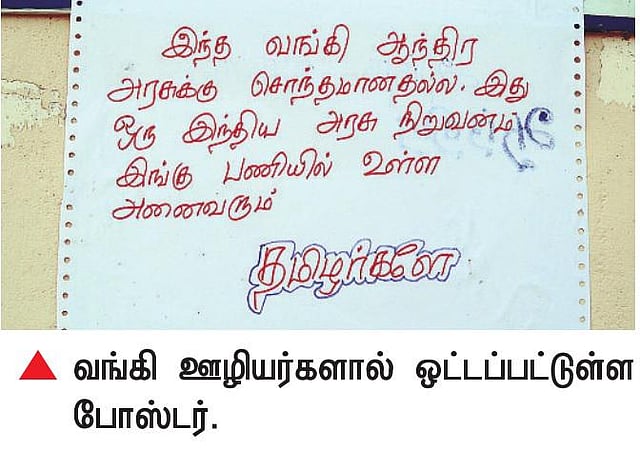 இந்த வங்கி ஆந்திர
அரசுக்கு சொந்தமானதல்ல. இது
ஒரு இந்திய அரசு நிறுவனம்
இங்கு பணியில் உள்ள
அனைவரும்
தமிழர்களே
வங்கி ஊழியர்களால் ஒட்டப்பட்டுள்ள
போஸ்டர்.